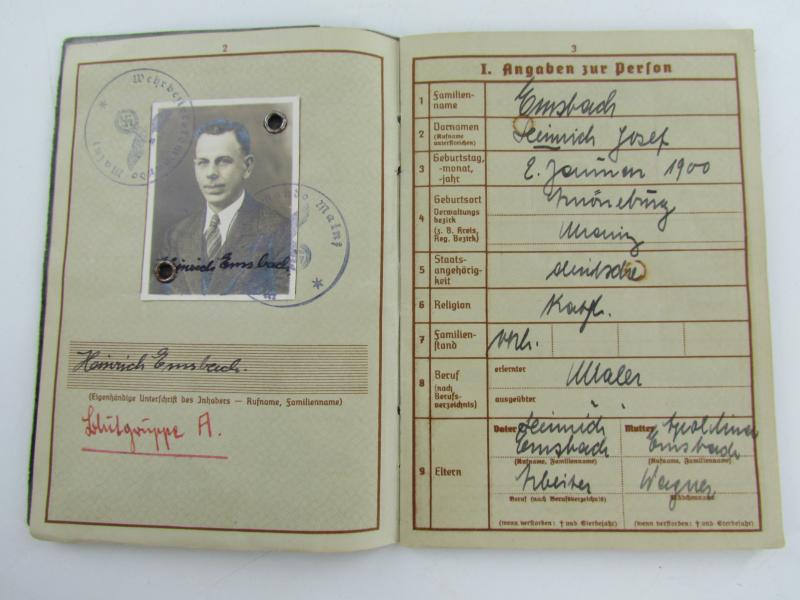 2
Heinrich Emsbach
Heinrich Emsbach.
(Eigenhändige Unterschrift des Inhabers — Rufname, Familienname)
Blutgruppe A.
3
I. Angaben zur Person
1 Familien-
name
Emsbach
2 Vornamen
(Rufname
unterstreichen)
Heinrich Josef
3 Geburtstag,
-monat,
-jahr
2. Januar 1900
4 Geburtsort
Verwaltungs
bezirk
(z. B. Kreis,
Reg. Bezirk)
5 Staats-
angehörig-
keit
deutsche
6 Religion
Kath.
7 Familien-
stand
verh.
8 Beruf
(nach
Berufs-
verzeichnis)
erlernter
Maler
ausgeübter
9 Eltern
Vater Heinrich
Emsbach
(Rufname, Familienname)
Arbeiter
Beruf (nach Berufsverzeichnis)
(wenn verstorben: † und Sterbejahr)
Mutter
Emsbach
(Rufname, Familienname)
Wagner
Mädchenname
(wenn verstorben: † und Sterbejahr)